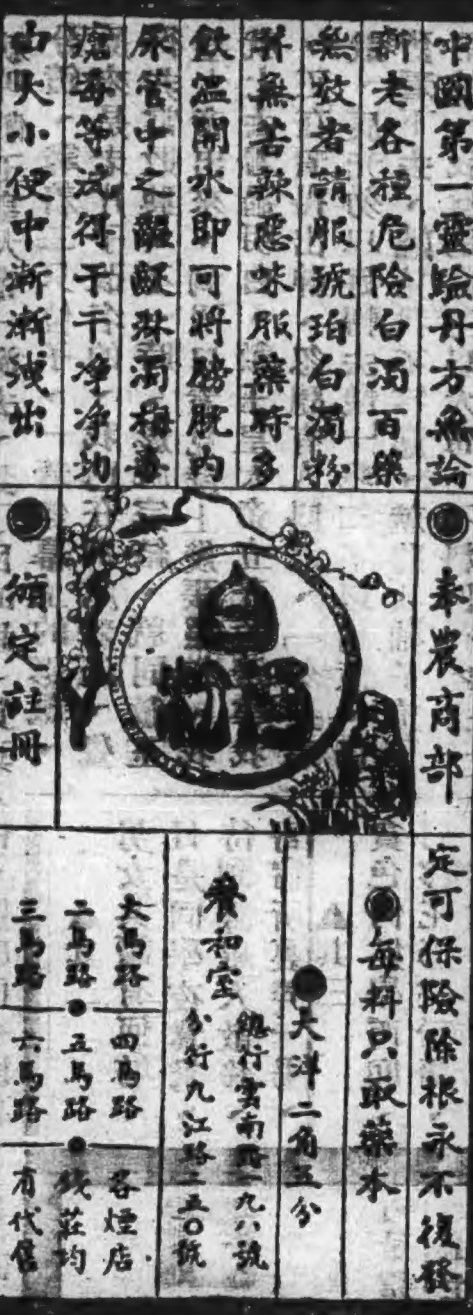 中國第一靈驗丹方無論
新老各種危險白濁百藥
無效者請服琥珀白濁粉
并無苦辣惡味服藥時多
飲溫開水即可將膀胱內
尿管中之齷齪淋濁梅毒
瘡毒等沈得干干凈凈均
由大小便中漸漸洩出
奉農商部
頒定註冊
白濁粉
定可保險除根永不復發
每料只取藥本
大洋二角五分
養和堂
總行雲南路一九八號
分行九江路一五〇號
大馬路
二馬路
三馬路
四馬路
五馬路
六馬路
各煙店
錢莊均
有代售